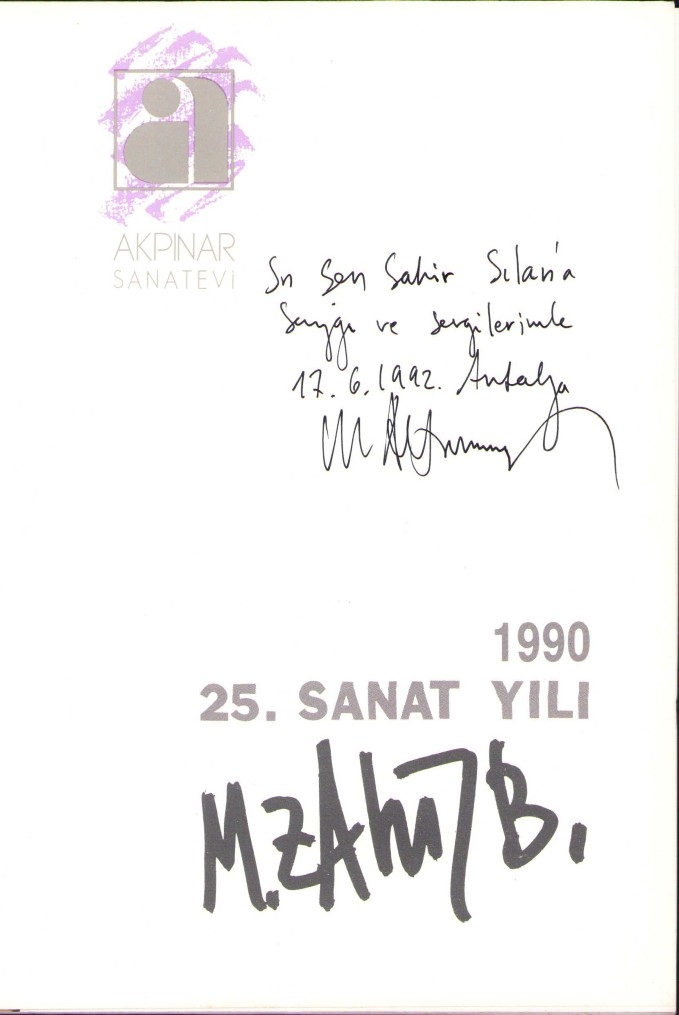 AKPINAR
SANATEVİ
Sn Şen Sahir Sılan'a
Saygı ve sevgilerimle
17.6.1992. Antalya
1990
25. SANAT YILI
M.ZAhit B.